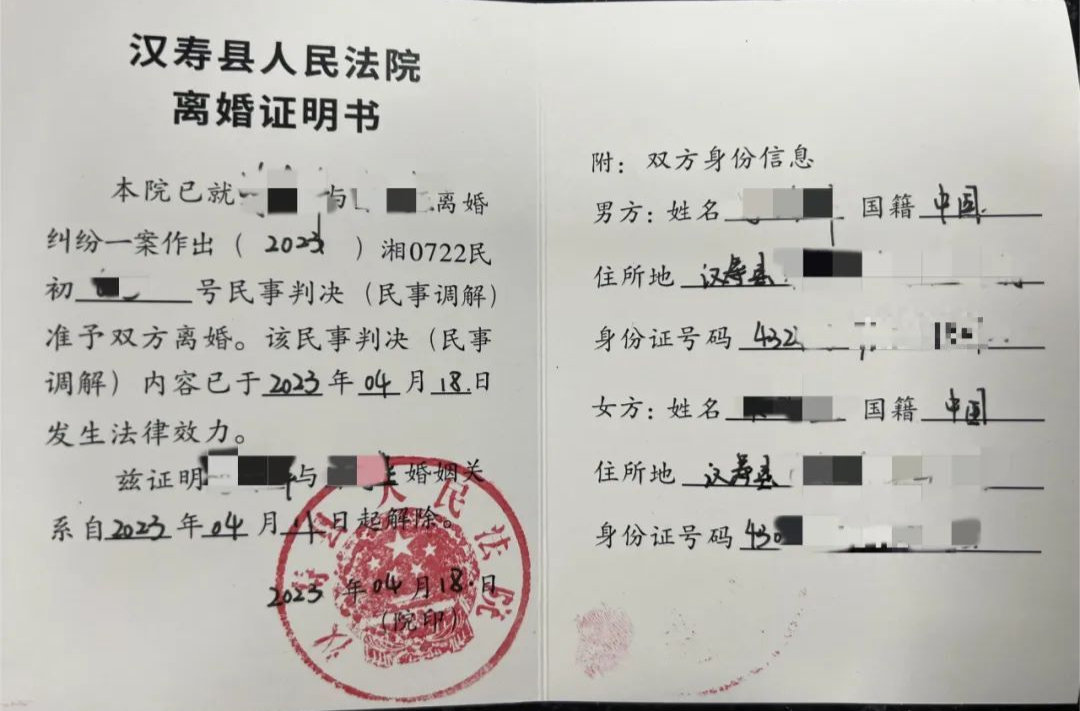 汉寿县人民法院
离婚证明书
本院已就 与 离婚
纠纷一案作出（2023）湘0722民
初 号民事判决（民事调解）
准予双方离婚。该民事判决（民事
调解）内容已于2023年04月18日
发生法律效力。
兹证明 与 婚姻关
系自2023年04月 日起解除。
2023年04月18日
（院印）
汉寿县人民法院
附：双方身份信息
男方：姓名 国籍 中国
住所地 汉寿县
身份证号码 432
女方：姓名 国籍 中国
住所地 汉寿县
身份证号码 430